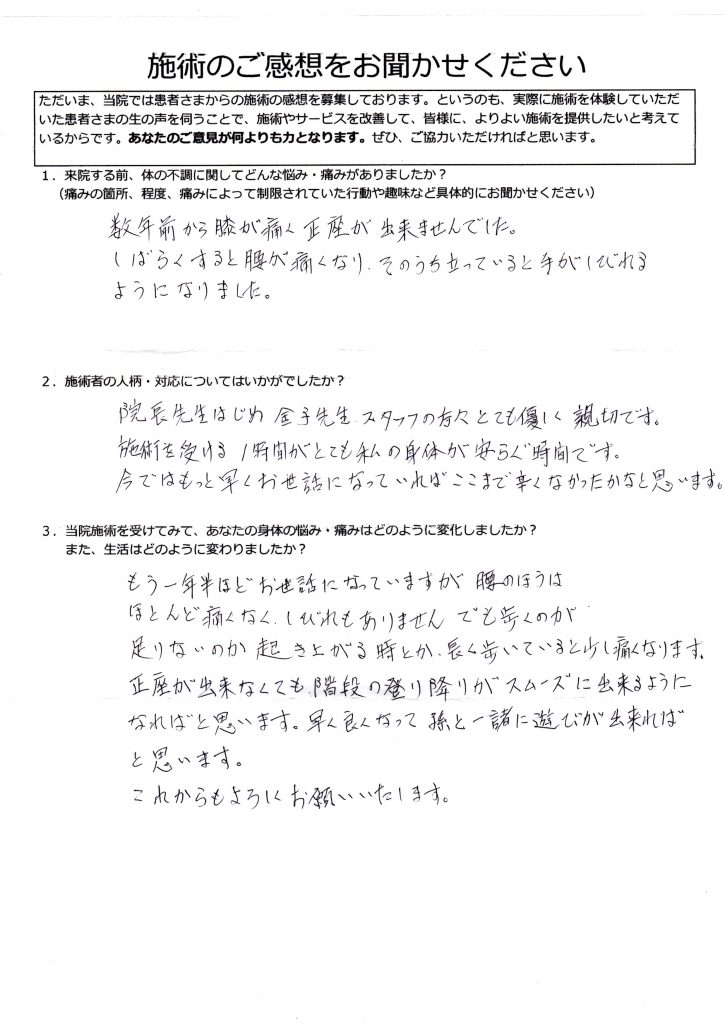 施術のご感想をお聞かせください
ただいま、当院では患者さまからの施術の感想を募集しております。というのも、実際に施術を体験していただ
いた患者さまの生の声を伺うことで、施術やサービスを改善して、皆様に、よりよい施術を提供したいと考えて
いるからです。あなたのご意見が何よりも力となります。ぜひ、ご協力いただければと思います。
１．来院する前、体の不調に関してどんな悩み・痛みがありましたか？
（痛みの箇所、程度、痛みによって制限されていた行動や趣味など具体的にお聞かせください）
数年前から膝が痛く正座が出来ませんでした。
しばらくすると腰が痛くなり、そのうち立っていると手がしびれる
ようになりました。
２．施術者の人柄・対応についてはいかがでしたか？
院長先生はじめ 金子先生、スタッフの方々とても優しく親切です。
施術を受ける 1時間がとても私の身体が安らぐ時間です。
今ではもっと早くお世話になっていればここまで辛くなかったかなと思います。
３．当院施術を受けてみて、あなたの身体の悩み・痛みはどのように変化しましたか？
また、生活はどのように変わりましたか？
もう一年半ほどお世話になっていますが 腰のほうは
ほとんど痛くなく、しびれもありません でも歩くのが
足りないのか 起き上がる時とか、長く歩いていると少し痛くなります。
正座が出来なくても、階段の登り降りがスムーズに出来るように
なればと思います。早く良くなって 孫と一諸に遊びが出来れば
と思います。
これからもよろしくお願いいたします。